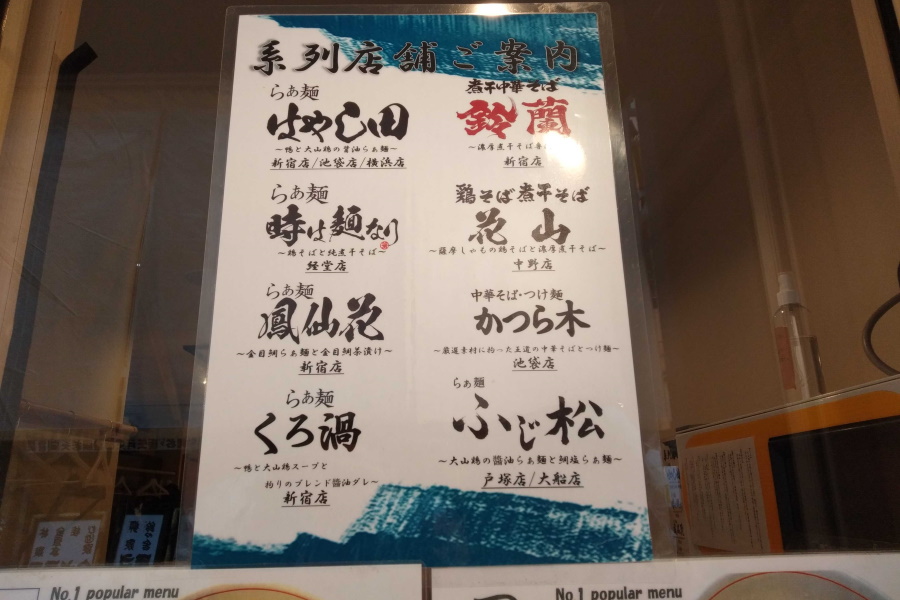 系列店舗ご案内
らぁ麺
はやし田
～鴨と大山鶏の醤油らぁ麺～
新宿店/池袋店/横浜店
らぁ麺
時は麺なり
～鶏そばと純煮干そば～
経堂店
らぁ麺
鳳仙花
～金目鯛らぁ麺と金目鯛茶漬け～
新宿店
らぁ麺
くろ渦
～鴨と大山鶏スープと
拘りのブレンド醤油ダレ～
新宿店
煮干中華そば
鈴蘭
～濃厚煮干そば
新宿店
鶏そば煮干そば
花山
～薩摩しゃもの鶏そばと濃厚煮干そば～
中野店
中華そば・つけ麺
かつら木
～厳選素材に拘った王道の中華そばとつけ麺～
池袋店
らぁ麺
ふじ松
～大山鶏の醤油らぁ麺と鯛塩らぁ麺～
戸塚店/大船店
No.1 popular menu
No.1 popular menu